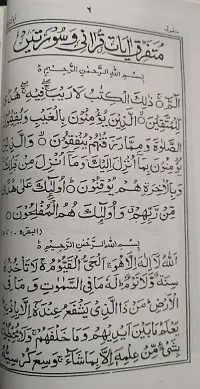 ۶
متفرق آیات قرآنی و سورتیں
بِسْمِ اللهِ الرَّحْمٰنِ الرَّحِيْمِ ○
الٓمّٓ ○ ذٰلِكَ الْكِتٰبُ لَا رَيْبَ فِيْهِ هُدًى
لِّلْمُتَّقِيْنَ ○ الَّذِيْنَ يُؤْمِنُوْنَ بِالْغَيْبِ وَيُقِيْمُوْنَ
الصَّلٰوةَ وَمِمَّا رَزَقْنٰهُمْ يُنْفِقُوْنَ ○ وَالَّذِيْنَ
يُؤْمِنُوْنَ بِمَا اُنْزِلَ اِلَيْكَ وَمَا اُنْزِلَ مِنْ قَبْلِكَ
وَبِالْاٰخِرَةِ هُمْ يُوْقِنُوْنَ ○ اُولٰٓئِكَ عَلٰى هُدًى
مِّنْ رَّبِّهِمْ وَاُولٰٓئِكَ هُمُ الْمُفْلِحُوْنَ ○
بِسْمِ اللهِ الرَّحْمٰنِ الرَّحِيْمِ ○
اَللهُ لَآ اِلٰهَ اِلَّا هُوَ اَلْحَيُّ الْقَيُّوْمُ لَا تَأْخُذُهٗ
سِنَةٌ وَّلَا نَوْمٌ لَهٗ مَا فِي السَّمٰوٰتِ وَمَا فِي
الْاَرْضِ مَنْ ذَا الَّذِيْ يَشْفَعُ عِنْدَهٗٓ اِلَّا بِاِذْنِهٖ
يَعْلَمُ مَا بَيْنَ اَيْدِيْهِمْ وَمَا خَلْفَهُمْ وَلَا يُحِيْطُوْنَ
بِشَيْءٍ مِّنْ عِلْمِهٖٓ اِلَّا بِمَا شَآءَ وَسِعَ كُرْسِيُّهُ